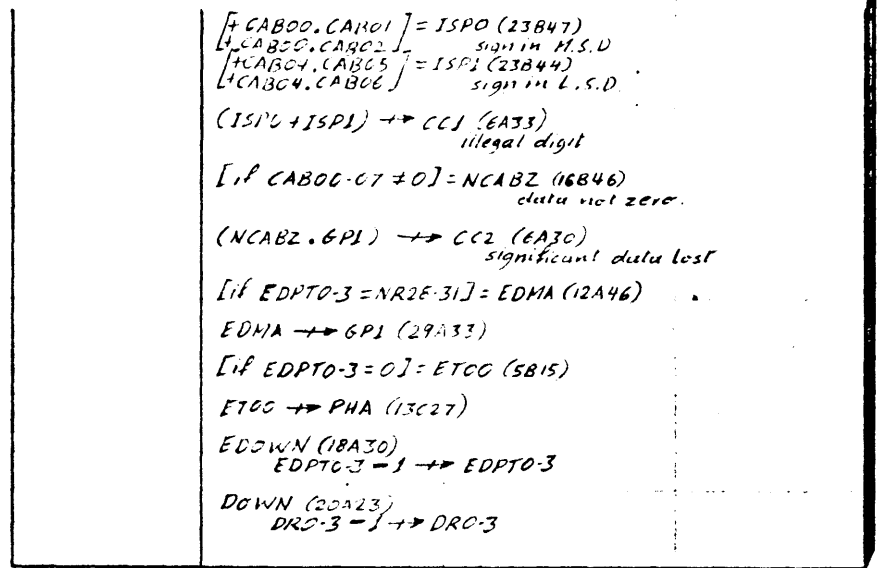 [+ CAB00.CAB01] = ISP0 (23B47)
[+ CAB00.CAB02] sign in M.S.D
[+CAB04.CAB05] = ISP1 (23B44)
[+CAB04.CAB06] sign in L.S.D.
(ISP0 + ISP1) ↦ CC1 (6A33)
illegal digit
[if CAB00-07 ≠ 0] = NCABZ (16B46)
data not zero.
(NCABZ . GP1) ↦ CC2 (6A30)
significant data lost
[if EDPT0-3 = NR28-31] = EDMA (12A46)
EDMA ↦ GP1 (29A33)
[if EDPT0-3 = 0] = ET00 (5B15)
ET00 ↦ PHA (13C27)
EDOWN (18A30)
EDPT0-3 - 1 ↦ EDPT0-3
DOWN (20A23)
DR0-3 - 1 ↦ DR0-3